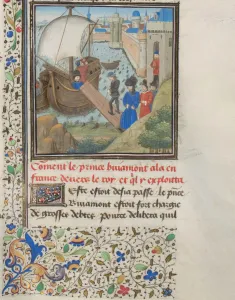 Coment le prince buiamont ala en
france devers le roy et ql y exploita
estre estoit desia passe le pnce
Buiamont estoit fort chargie
de grosses debtes Pource delibera quil